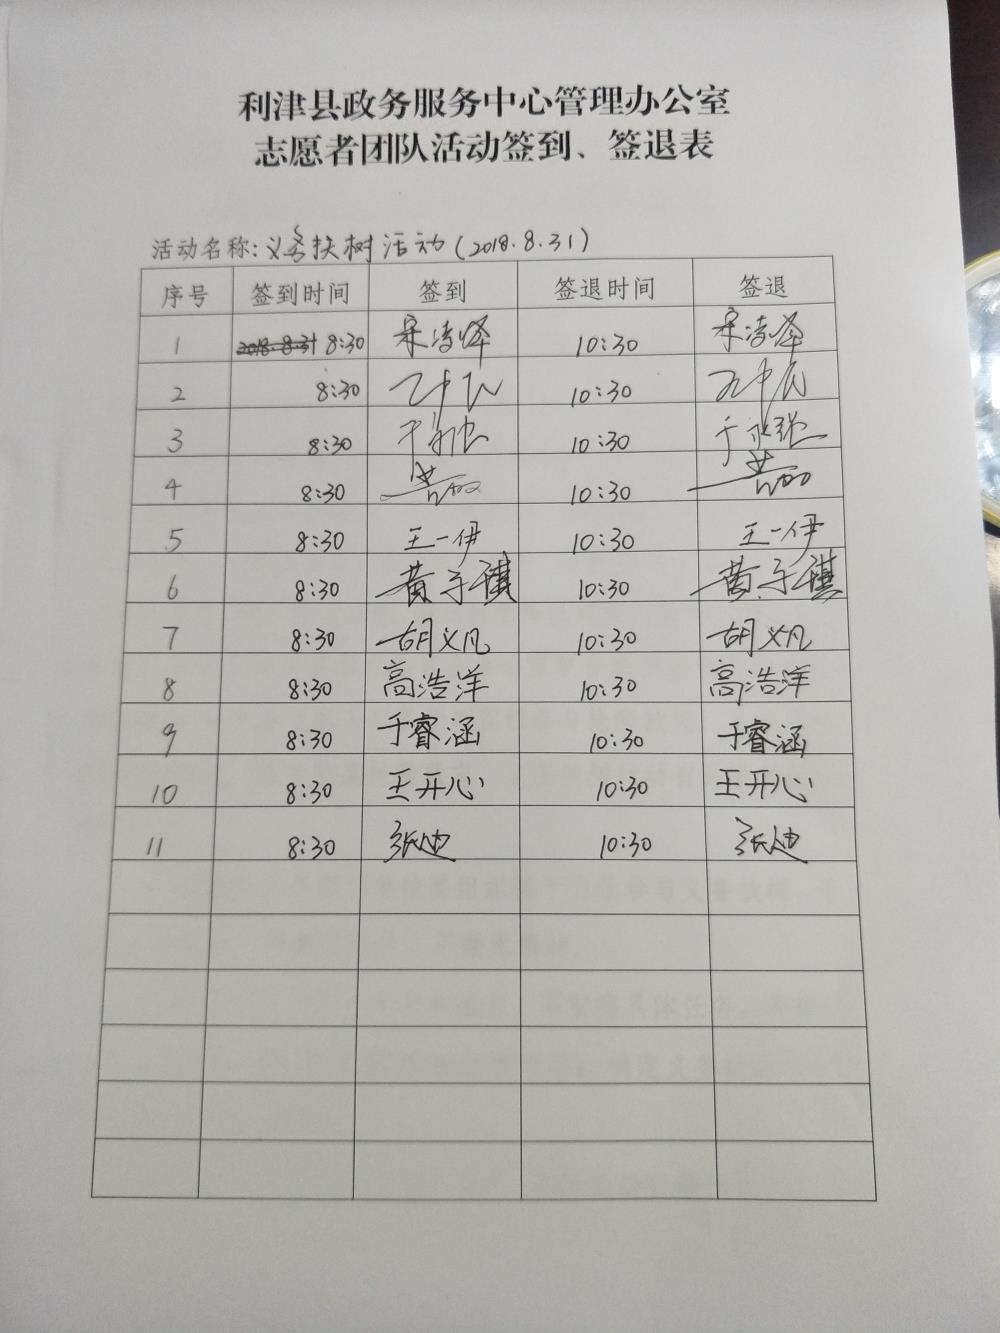 利津县政务服务中心管理办公室
志愿者团队活动签到、签退表
活动名称:义务扶树活动(2018.8.31)
序号 签到时间 签到 签退时间 签退
1 2018.8.31 8:30 宋凌峰 10:30 宋凌峰
2 8:30 10:30
3 8:30 于永强 10:30 于永强
4 8:30 10:30
5 8:30 王一伊 10:30 王一伊
6 8:30 黄子祺 10:30 黄子祺
7 8:30 胡义凡 10:30 胡义凡
8 8:30 高浩洋 10:30 高浩洋
9 8:30 于睿涵 10:30 于睿涵
10 8:30 王开心 10:30 王开心
11 8:30 张迪 10:30 张迪